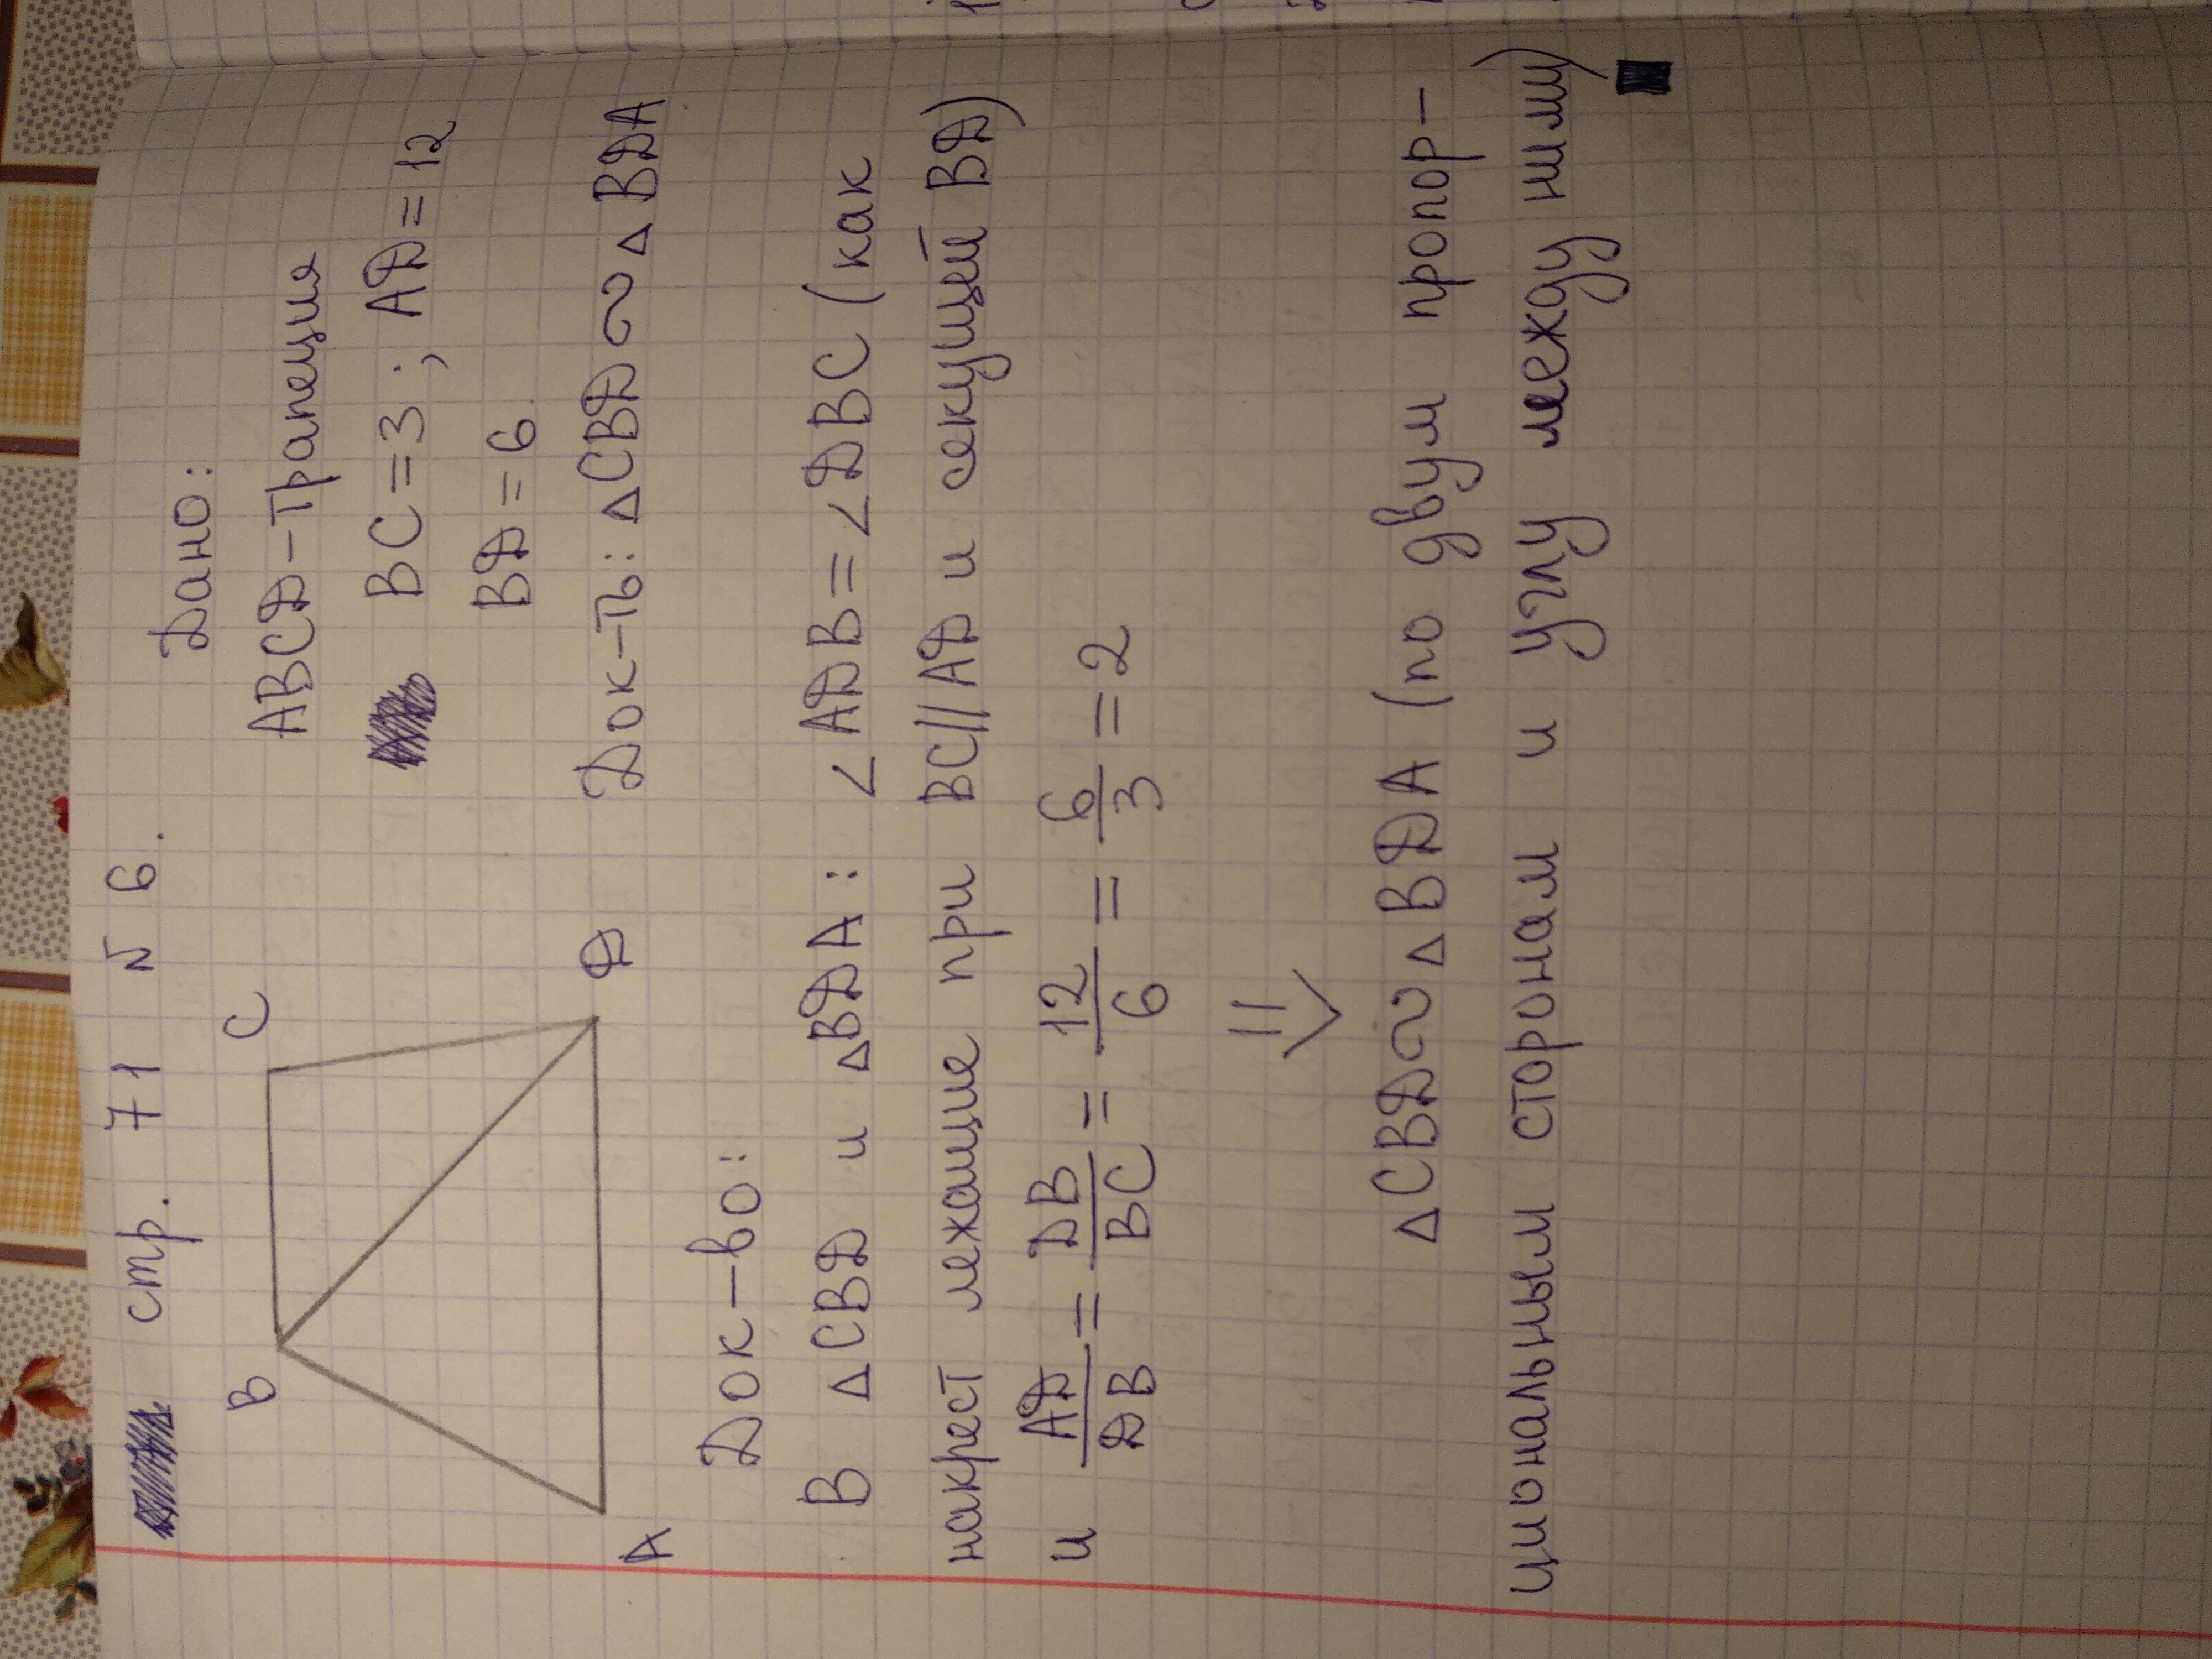 стр. 71 N 6.
Дано:
ABCD - Трапеция
BC = 3 ; AD = 12
BD = 6
Док-ть: △CBD ∾ △BDA
B C
A D
Док-во:
В △CBD и △BDA: ∠ADB = ∠DBC (как
накрест лежащие при BC || AD и секущей BD)
и AD/DB = DB/BC = 12/6 = 6/3 = 2
⇓
△CBD ∾ △BDA (по двум пропор-
циональным сторонам и углу между ними)